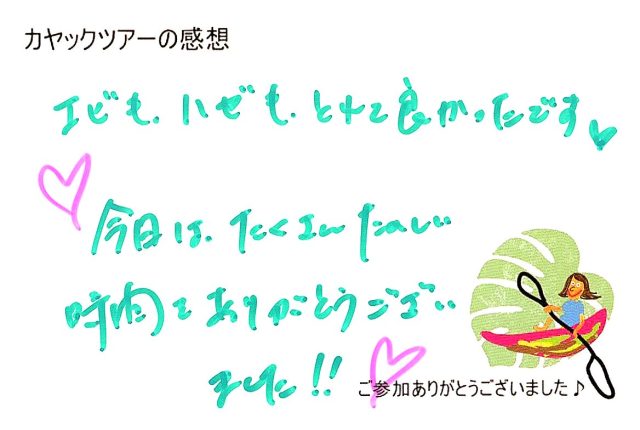 カヤックツアーの感想
エビも、ハゼも、とれて良かったです
今日は、たくさんたのしい
時間をありがとうござい
ました!!
ご参加ありがとうございました♪